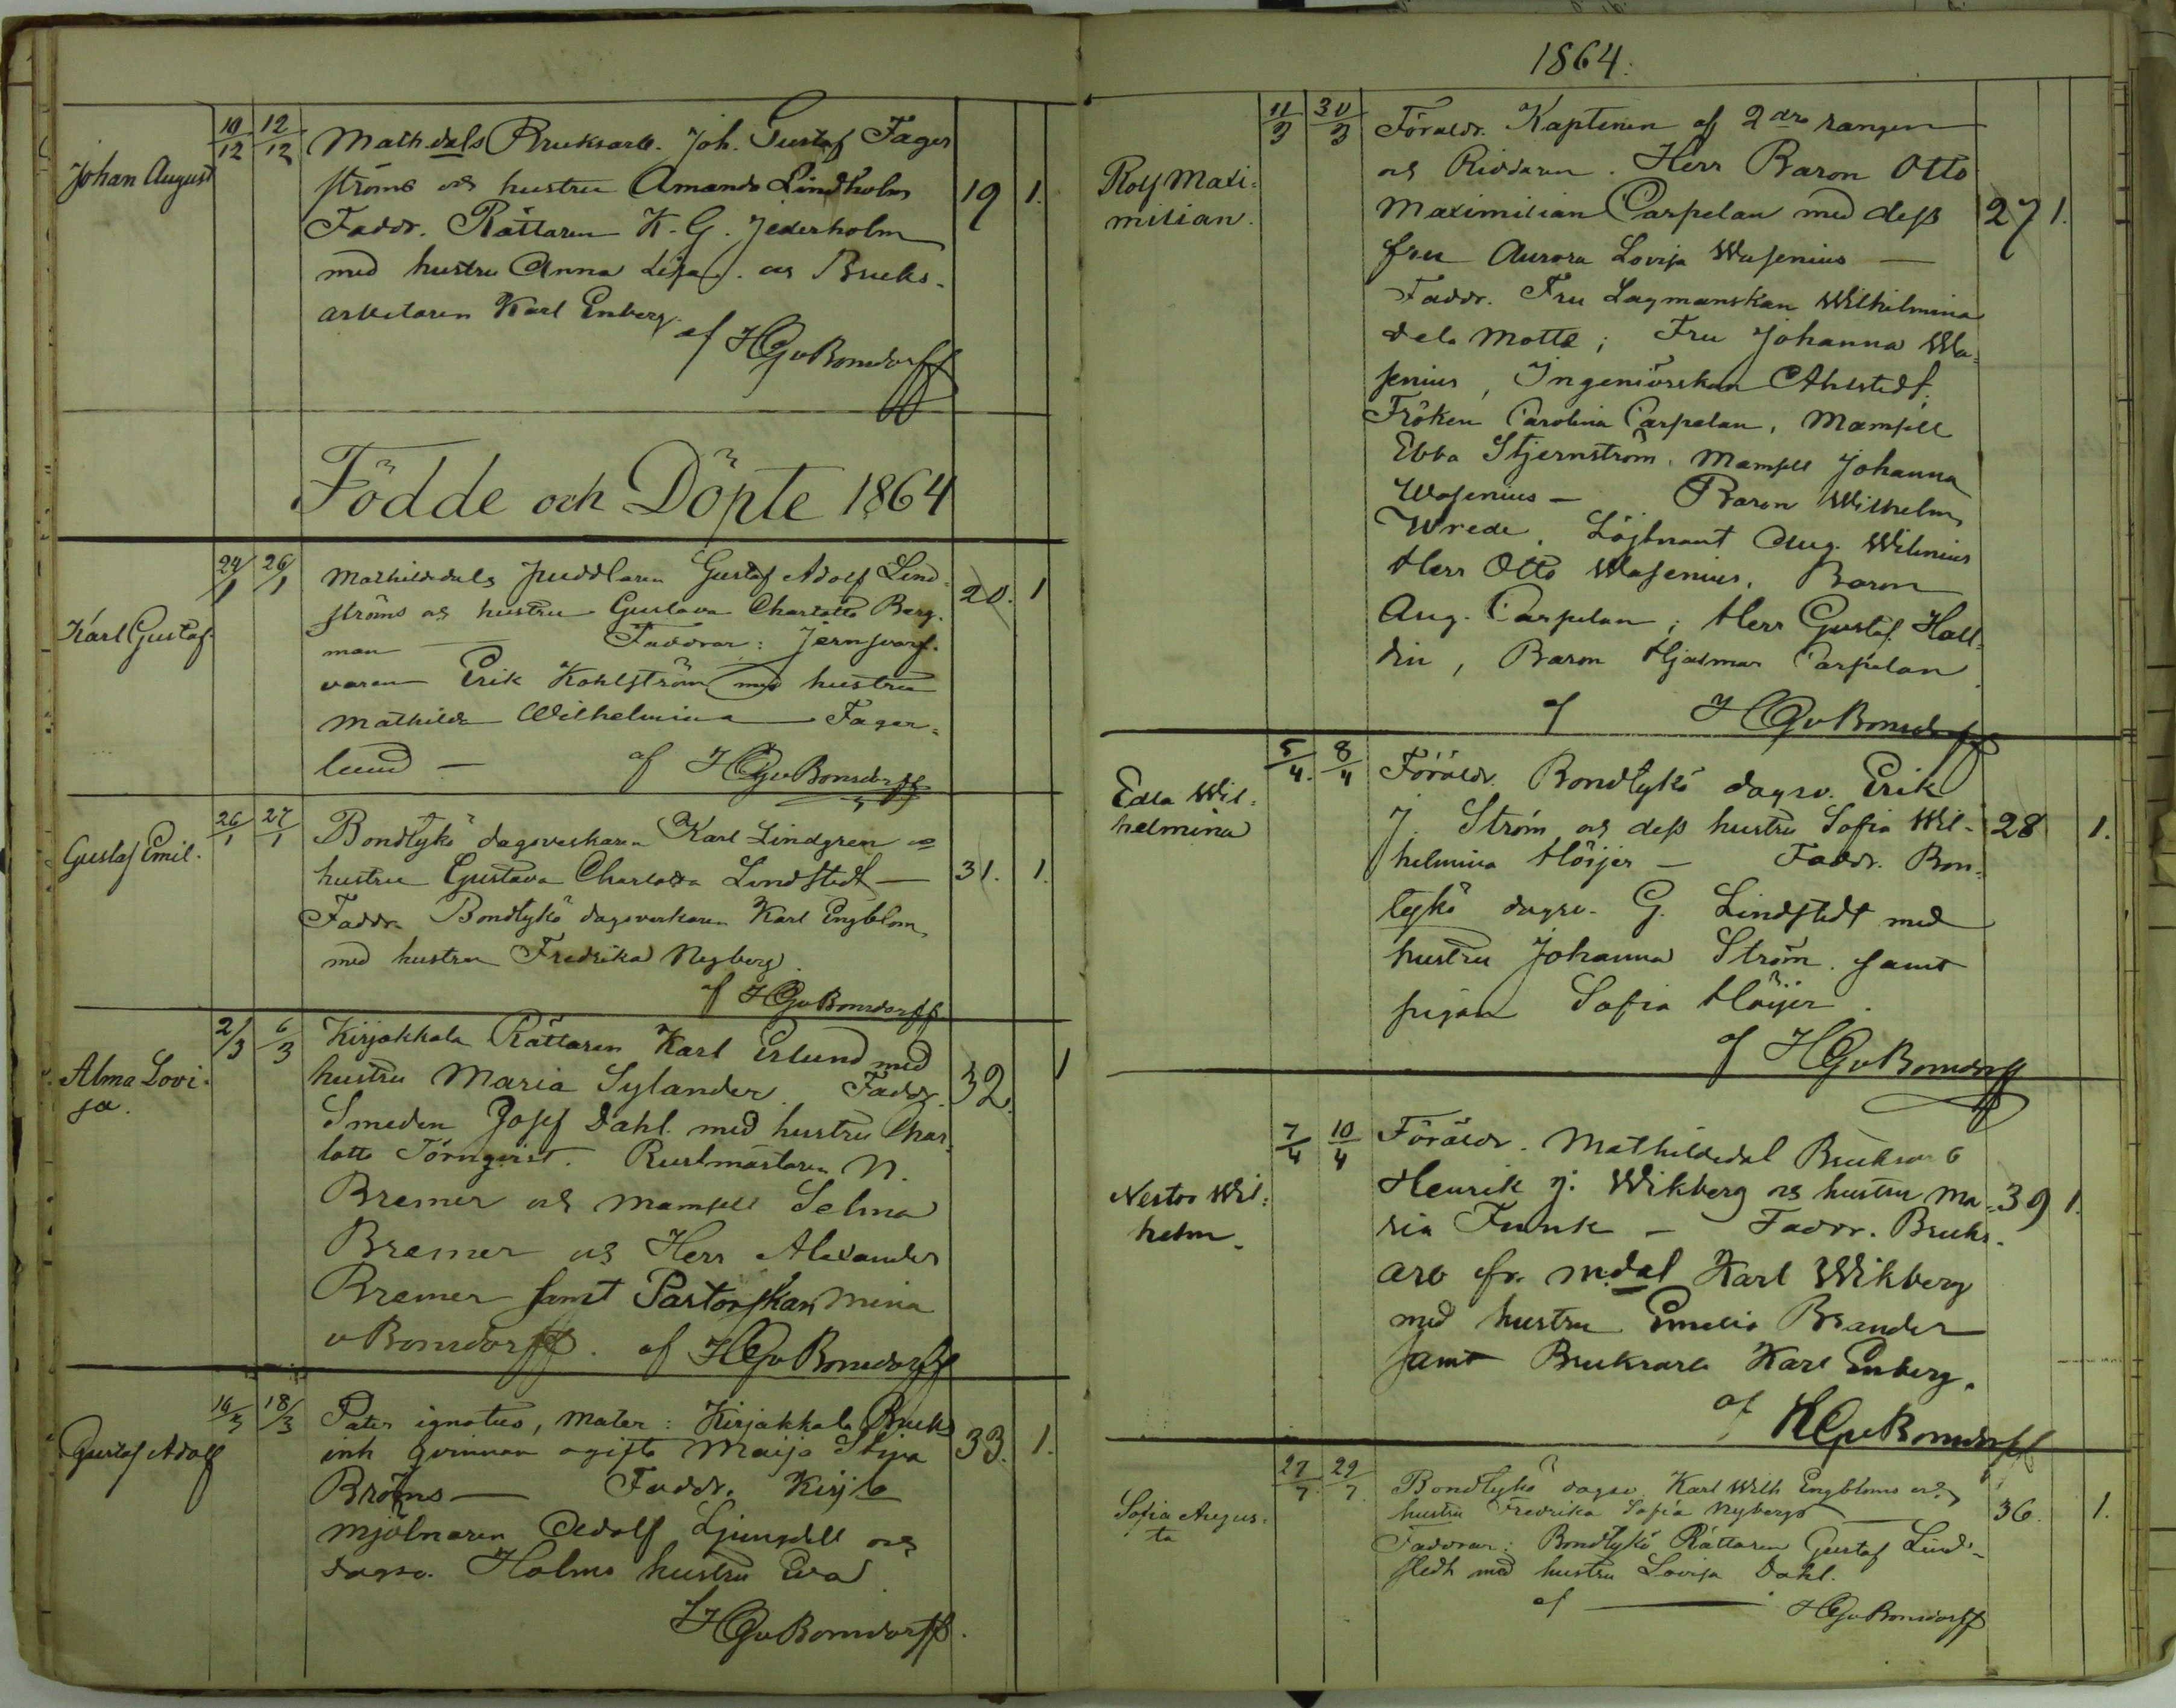 Johan August
10/12 12/12
Math.dals Bruksarb. Joh. Gustaf Fager
ströms och hustru Amanda Lindholm 19 1.
Faddr. Rättaren K. G. Jederholm
med hustru Anna Lisa. och Bruks-
arbetaren Karl Enberg.
af HGvBonsdorff
Födde och Döpte 1864
Karl Gustaf
24/1 26/1
Mathildedals puddlaren Gustaf Adolf Lind- 20. 1
ströms och hustru Gustava Charlotta Berg-
man — Faddrar: Jern
varen Erik Kohlström med hustru
Mathilda Wilhelmina Fager-
lund — af HGvBonsdorff
Gustaf Emil.
26/1 27/1
Bondtykö dagsverkaren Karl Lindgren o
hustru Gustava Charlotta Lindstedt — 31. 1.
Faddr. Bondtykö dagsverkaren Karl Engblom
med hustru Fredrika Nyberg.
af HGvBonsdorff
Alma Lovi-
sa.
2/3 6/3
Kirjakkala Rättaren Karl Erlund med
hustru Maria Sylander. Faddr. 32. 1
Smeden Josef Dahl. med hustru Char-
lotta Törnqvist. Rustmästaren N.
Bremer och Mamsell Selma
Bremer och Herr Alexander
Bremer samt Pastorskan Mina
vBonsdorff. af HGvBonsdorff
Gustaf Adolf
16/3 18/3
Pater ignotus, Mater: Kirjakkala Bruks
inh qvinnan ogifta Maija Stina 33. 1.
Bröms — Faddr. Kirjla
mjölnaren Adolf Ljungdell och
dagsv. Holms hustru Eva
HGvBonsdorff.
1864.
Rolf Maxi-
milian.
11/3 30/3
Föräldr. Kaptenen af 2dra rangen
och Riddaren. Herr Baron Otto
Maximilian Carpelan med dess 27 1.
fru Aurora Lovisa Wasenius —
Faddr. Fru Lagmanskan Wilhelmina
dela Motte; Fru Johanna Wa-
senius, Ingeniörskan Ahlstedt.
Fröken Carolina Carpelan, Mamsell
Ebba Stjernström, Mamsell Johanna
Wasenius — Baron Wilhelm
Wrede. Löjtnant Aug. Wilenius
Herr Otto Wasenius, Baron
Aug. Carpelan; Herr Gustaf Hall-
din, Baron Hjalmar Carpelan
af HGvBonsdorff
Edla Wil-
helmina
5/4. 8/4
Föräldr. Bondtykö dagsv. Erik
J. Ström och dess hustru Sofia Wil- 28 1.
helmina Höijer — Faddr. Bon-
tykö dagsv. G. Lindstedt med
hustru Johanna Ström. samt
pigan Sofia Höijer.
af HGvBonsdorff
Nestor Wil-
helm.
7/4 10/4
Föräldr. Mathildedal Bruksarb
Henrik J. Wikberg och hustru Ma- 39 1.
ria Funk — Faddr. Bruks-
arb fr. M.dal Karl Wikberg
med hustru Emelia Brander
samt Bruksarb Karl Enberg.
af HGvBonsdorff
Sofia Augus-
ta
27/7. 29/7
Bondtykö dagsv. Karl Wilh Engbloms och
hustru Fredrika Sofia Nybergs — 36. 1.
Faddrar: Bondtykö Rättaren Gustaf Lind-
stedt med hustru Lovisa Dahl.
af — HGvBonsdorff